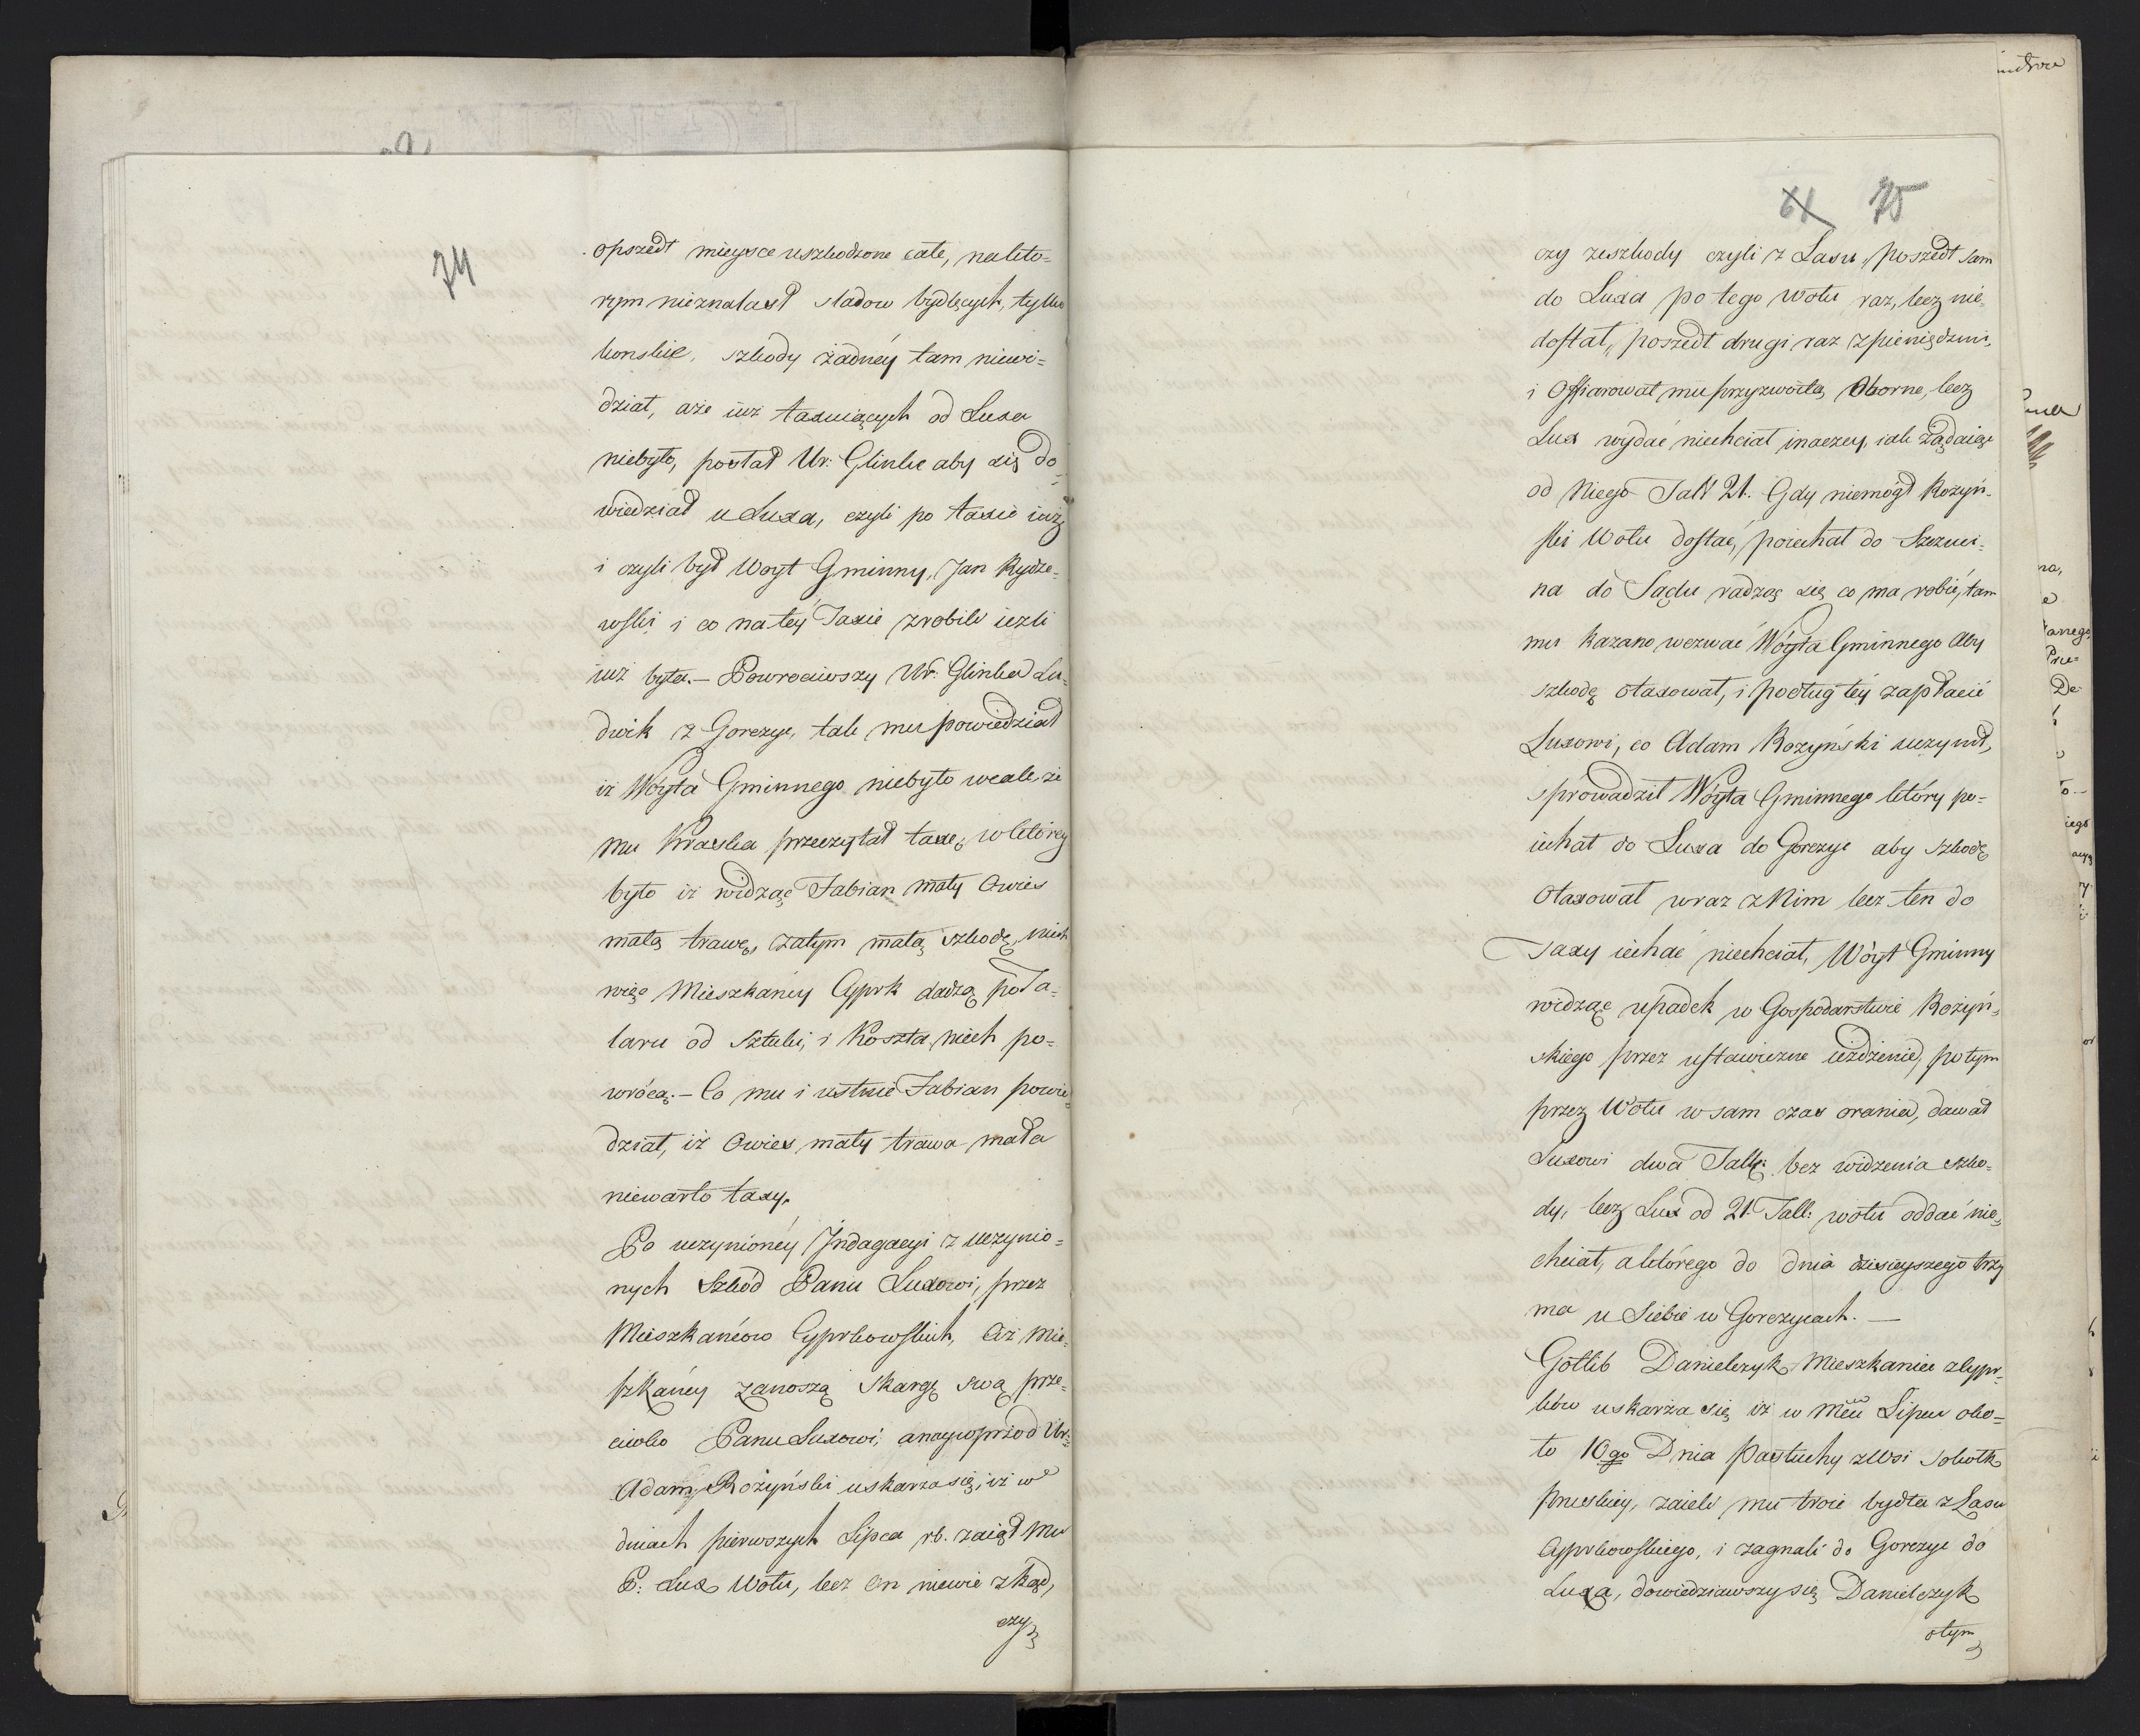 74
opszedł mieysce uszkodzone całe, na któ-
rym nieznalazł sladow bydlęcych, tylko
konskie, szkody żadnéy tam niewi-
dział, aże iuż taxuiących od Luxa
niebyło, posłał Ur: Glinke aby się do-
wiedział u Luxa, czyli po taxie iuż
i czyli był Woyt Gminny, Jan Rydze-
wski i co na téy Taxie zrobili ieżli
iuż była.— Powrociwszy Ur: Glinka Lu-
dwik z Gorczyc, tak mu powiedział
iż Wóyta Gminnego niebyło wcale, że
mu Kraska przeczytał taxę, w którey
było iż widząc Fabian mały Owies
małą trawę, zatym małą szkodę, niech
więc Mieszkańcy Cyprk dadzą po Ta-
laru od sztuki, i Koszta niech po-
wrócą.— Co mu i ustnie Fabian powie-
dział, iż Owies mały trawa mała
niewarto taxy.
Po uczynionéy Indagacyi z uczynio-
nych Szkód Panu Luxowi, przez
Mieszkańcow Cyprkowskich, Ciż Mie-
szkańcy zanoszą skargę swą prze-
ciwko Panu Luxowi, a naywprzod Ur:
Adam Rożyński uskarza się, iż w
dniach pierwszych Lipca rb. zaiął Mu
P: Lux Wołu, lecz on niewie zkąd,
czy
61 75
czy zeszkody czyli z Lasu, poszedł sam
do Luxa po tego Wołu raz, lecz nie-
dostał, poszedł drugi raz zpieniędzmi,
i Offiarował mu przyzwoitą Oborne, lecz
Lux wydać niechciał inaczey, iak żądaiąc
od Niego Tall 21. Gdy niemógł Rożyń-
ski Wołu dostać, poiechał do Szczuci-
na do Sądu radząc się co ma robić, tam
mu kazano wezwać Wóyta Gminnego Aby
szkodę otaxował, i podług téy zapłacić
Luxowi, co Adam Rożyński uczynił,
sprowadził Wóyta Gminnego który po-
iechał do Luxa do Gorczyc aby szkodę
otaxował wraz zNim lecz ten do
Taxy iechać niechciał, Wóyt Gminny
widząc upadek w Gospodarstwie Rożyń-
skiego przez ustawiczne ieżdżenie, potym
przez Wołu w sam czas orania, dawał
Luxowi dwa Tall: bez widzenia szko-
dy, lecz Lux od 21. Tall: wołu oddać nie-
chciał, aktórego do dnia dzisieyszego trzy
ma u Siebie w Gorczycach.—
Gotlib Danielczyk Mieszkaniec zCypr-
ków uskarża się iż w Mcu Lipcu oko-
ło 10go Dnia Pastuchy zWsi Sobotk
Pruskiey, zaieli mu troie bydła z Lasu
Cyprkowskiego, i zagnali do Gorczyc do
Luxa, dowiedziawszy się Danielczyk
otym